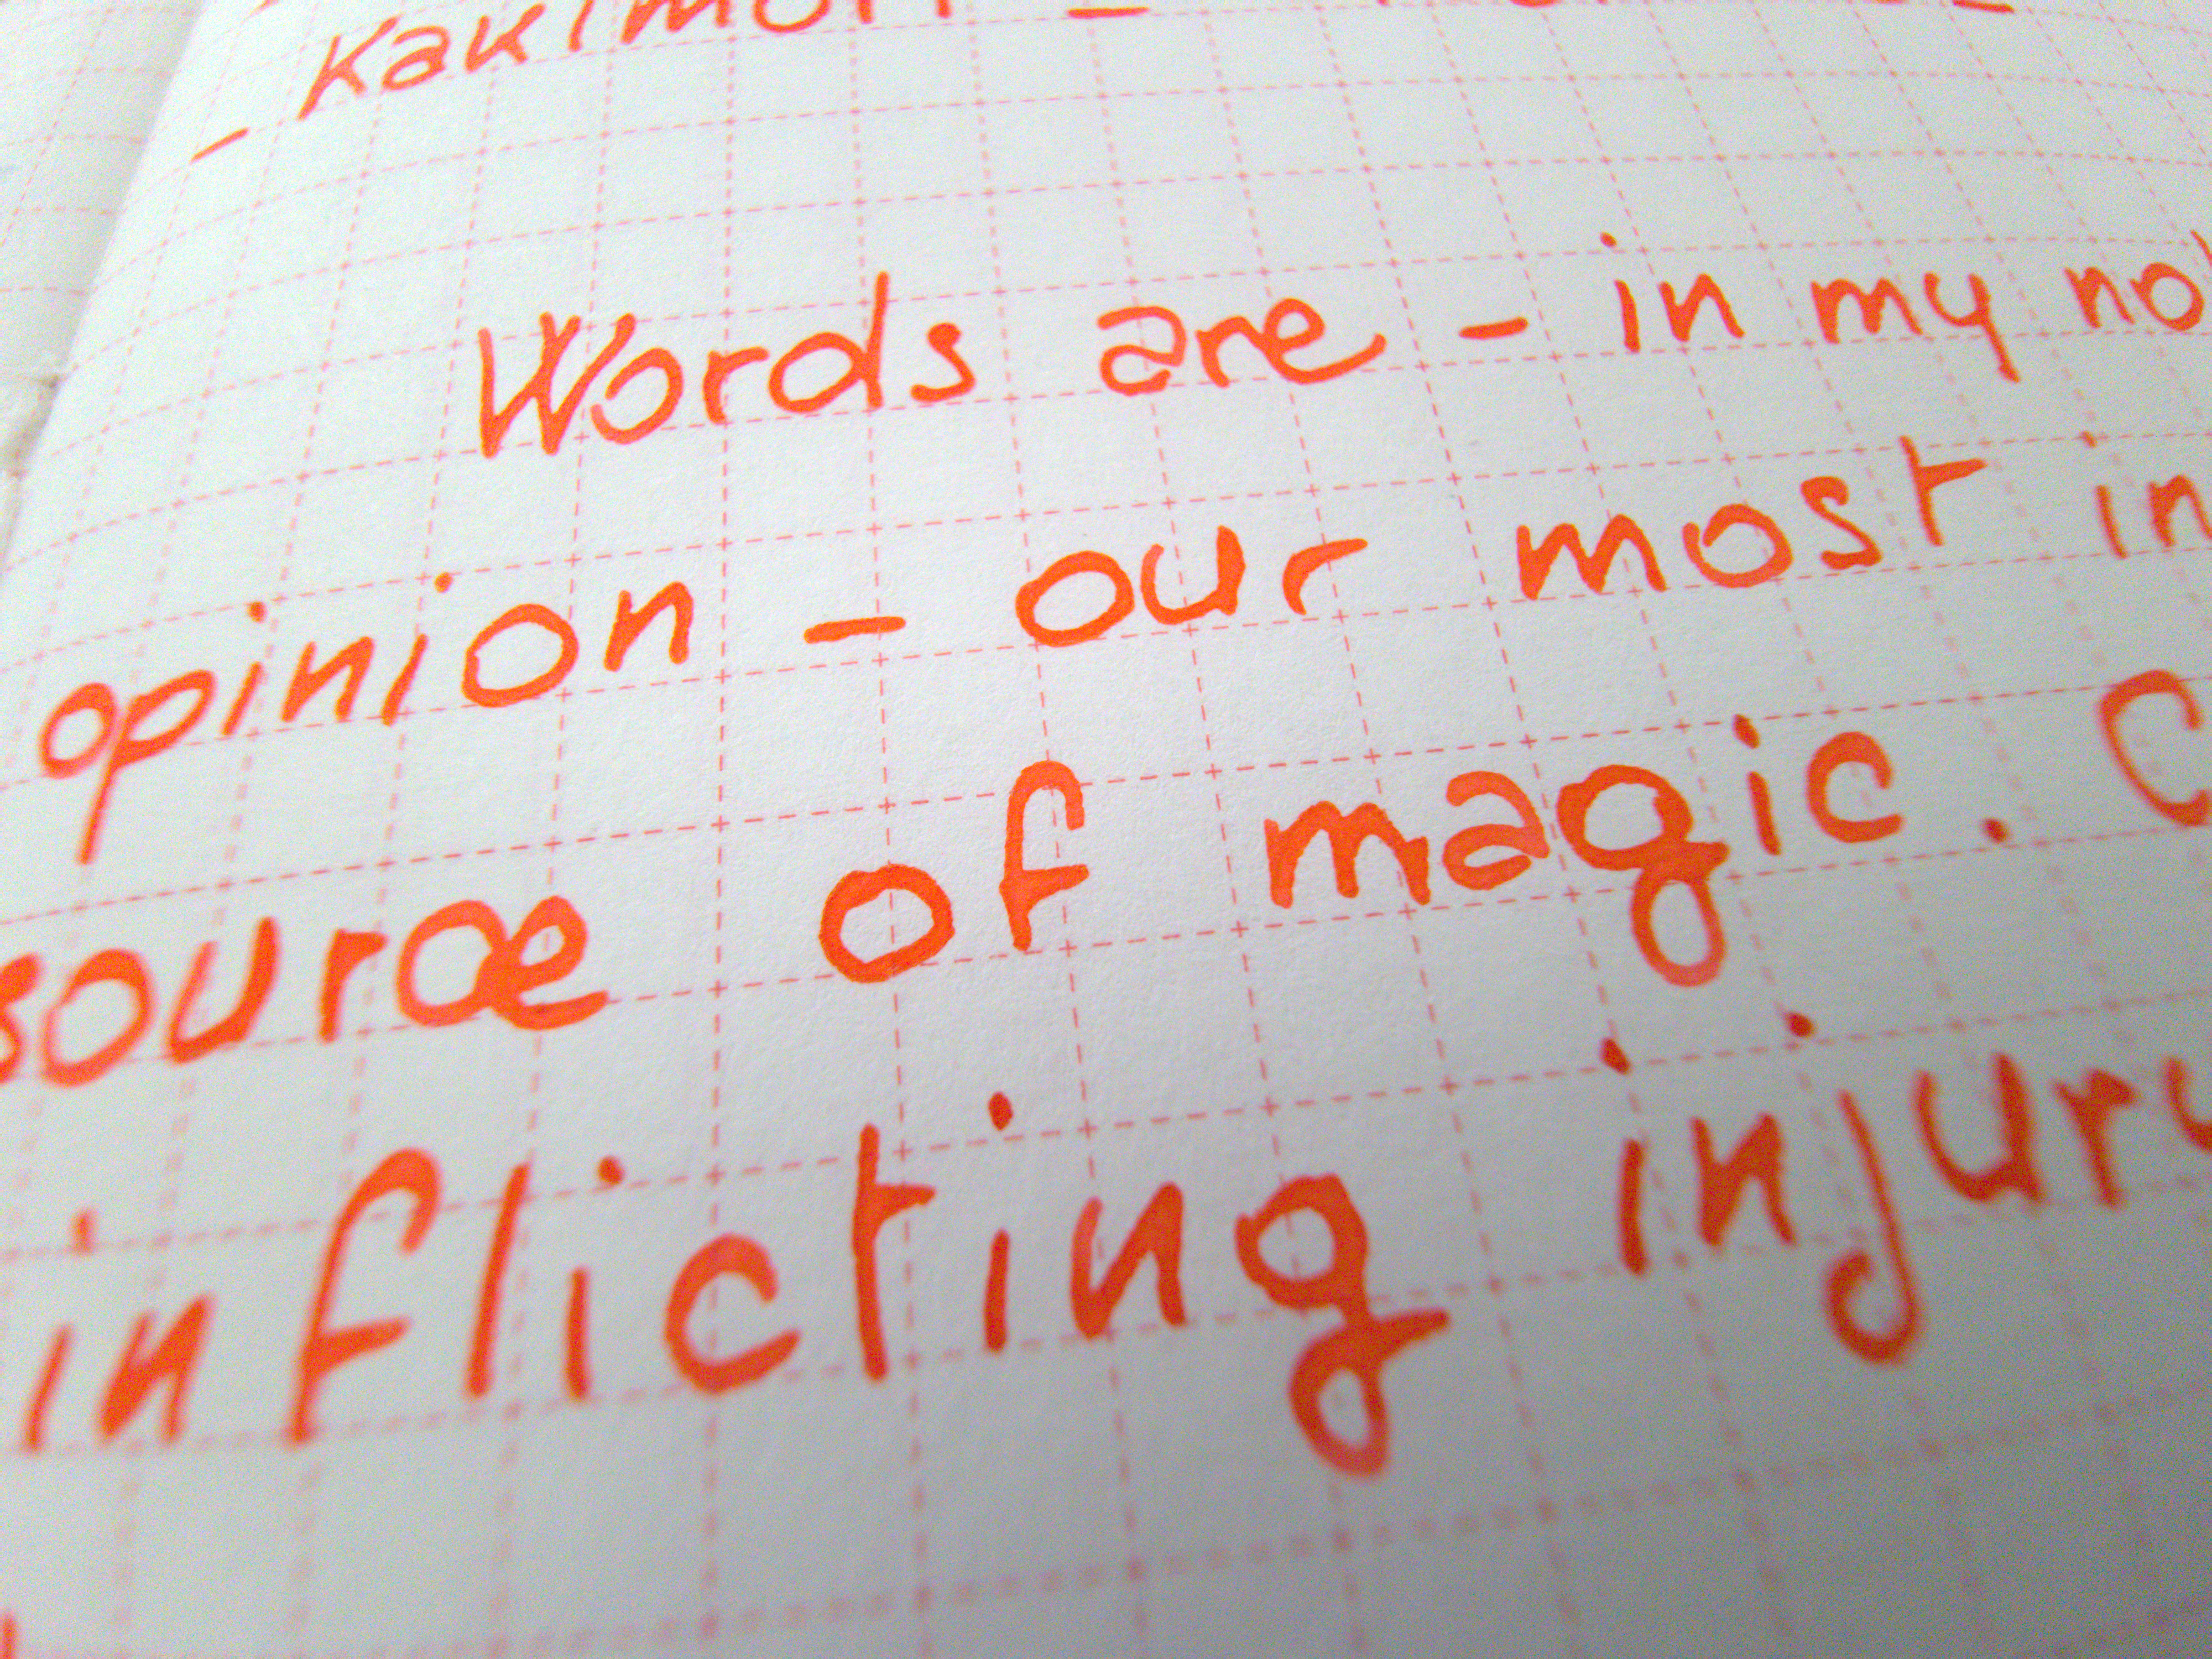 - Kakimori -
Words are - in my no
opinion - our most in
source of magic. C
inflicting injury